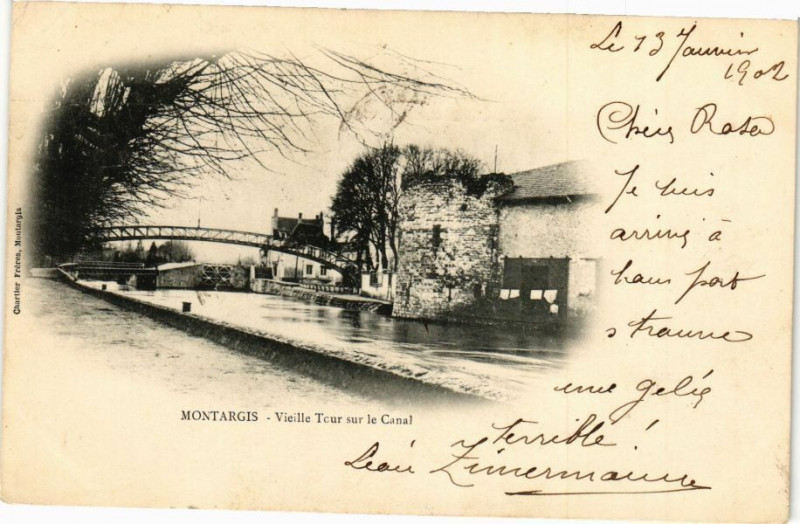 Le 13 Janvier
1902
Chère Rosa
Je suis
arrivé à
bon port
trouve
une gelée
terrible !
Léon Zimermann
MONTARGIS - Vieille Tour sur le Canal
Chartier Frères, Montargis